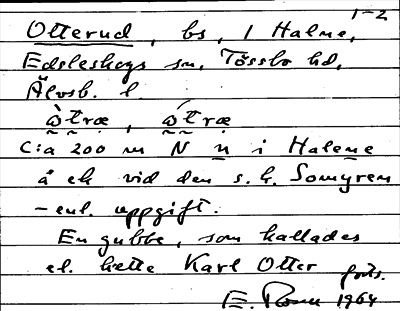 1-2
Otterud, bs, 1 Halne,
Edsleskogs sn, Tössbo hd,
Älvsb. l.
ὼtræ, ώtræ
C:a 200 m N n i Halene
å ek vid den s.k. Somyren
- enl. uppgift.
En gubbe, som kallades
el. hette Karl Otter
forts.
E. 1964